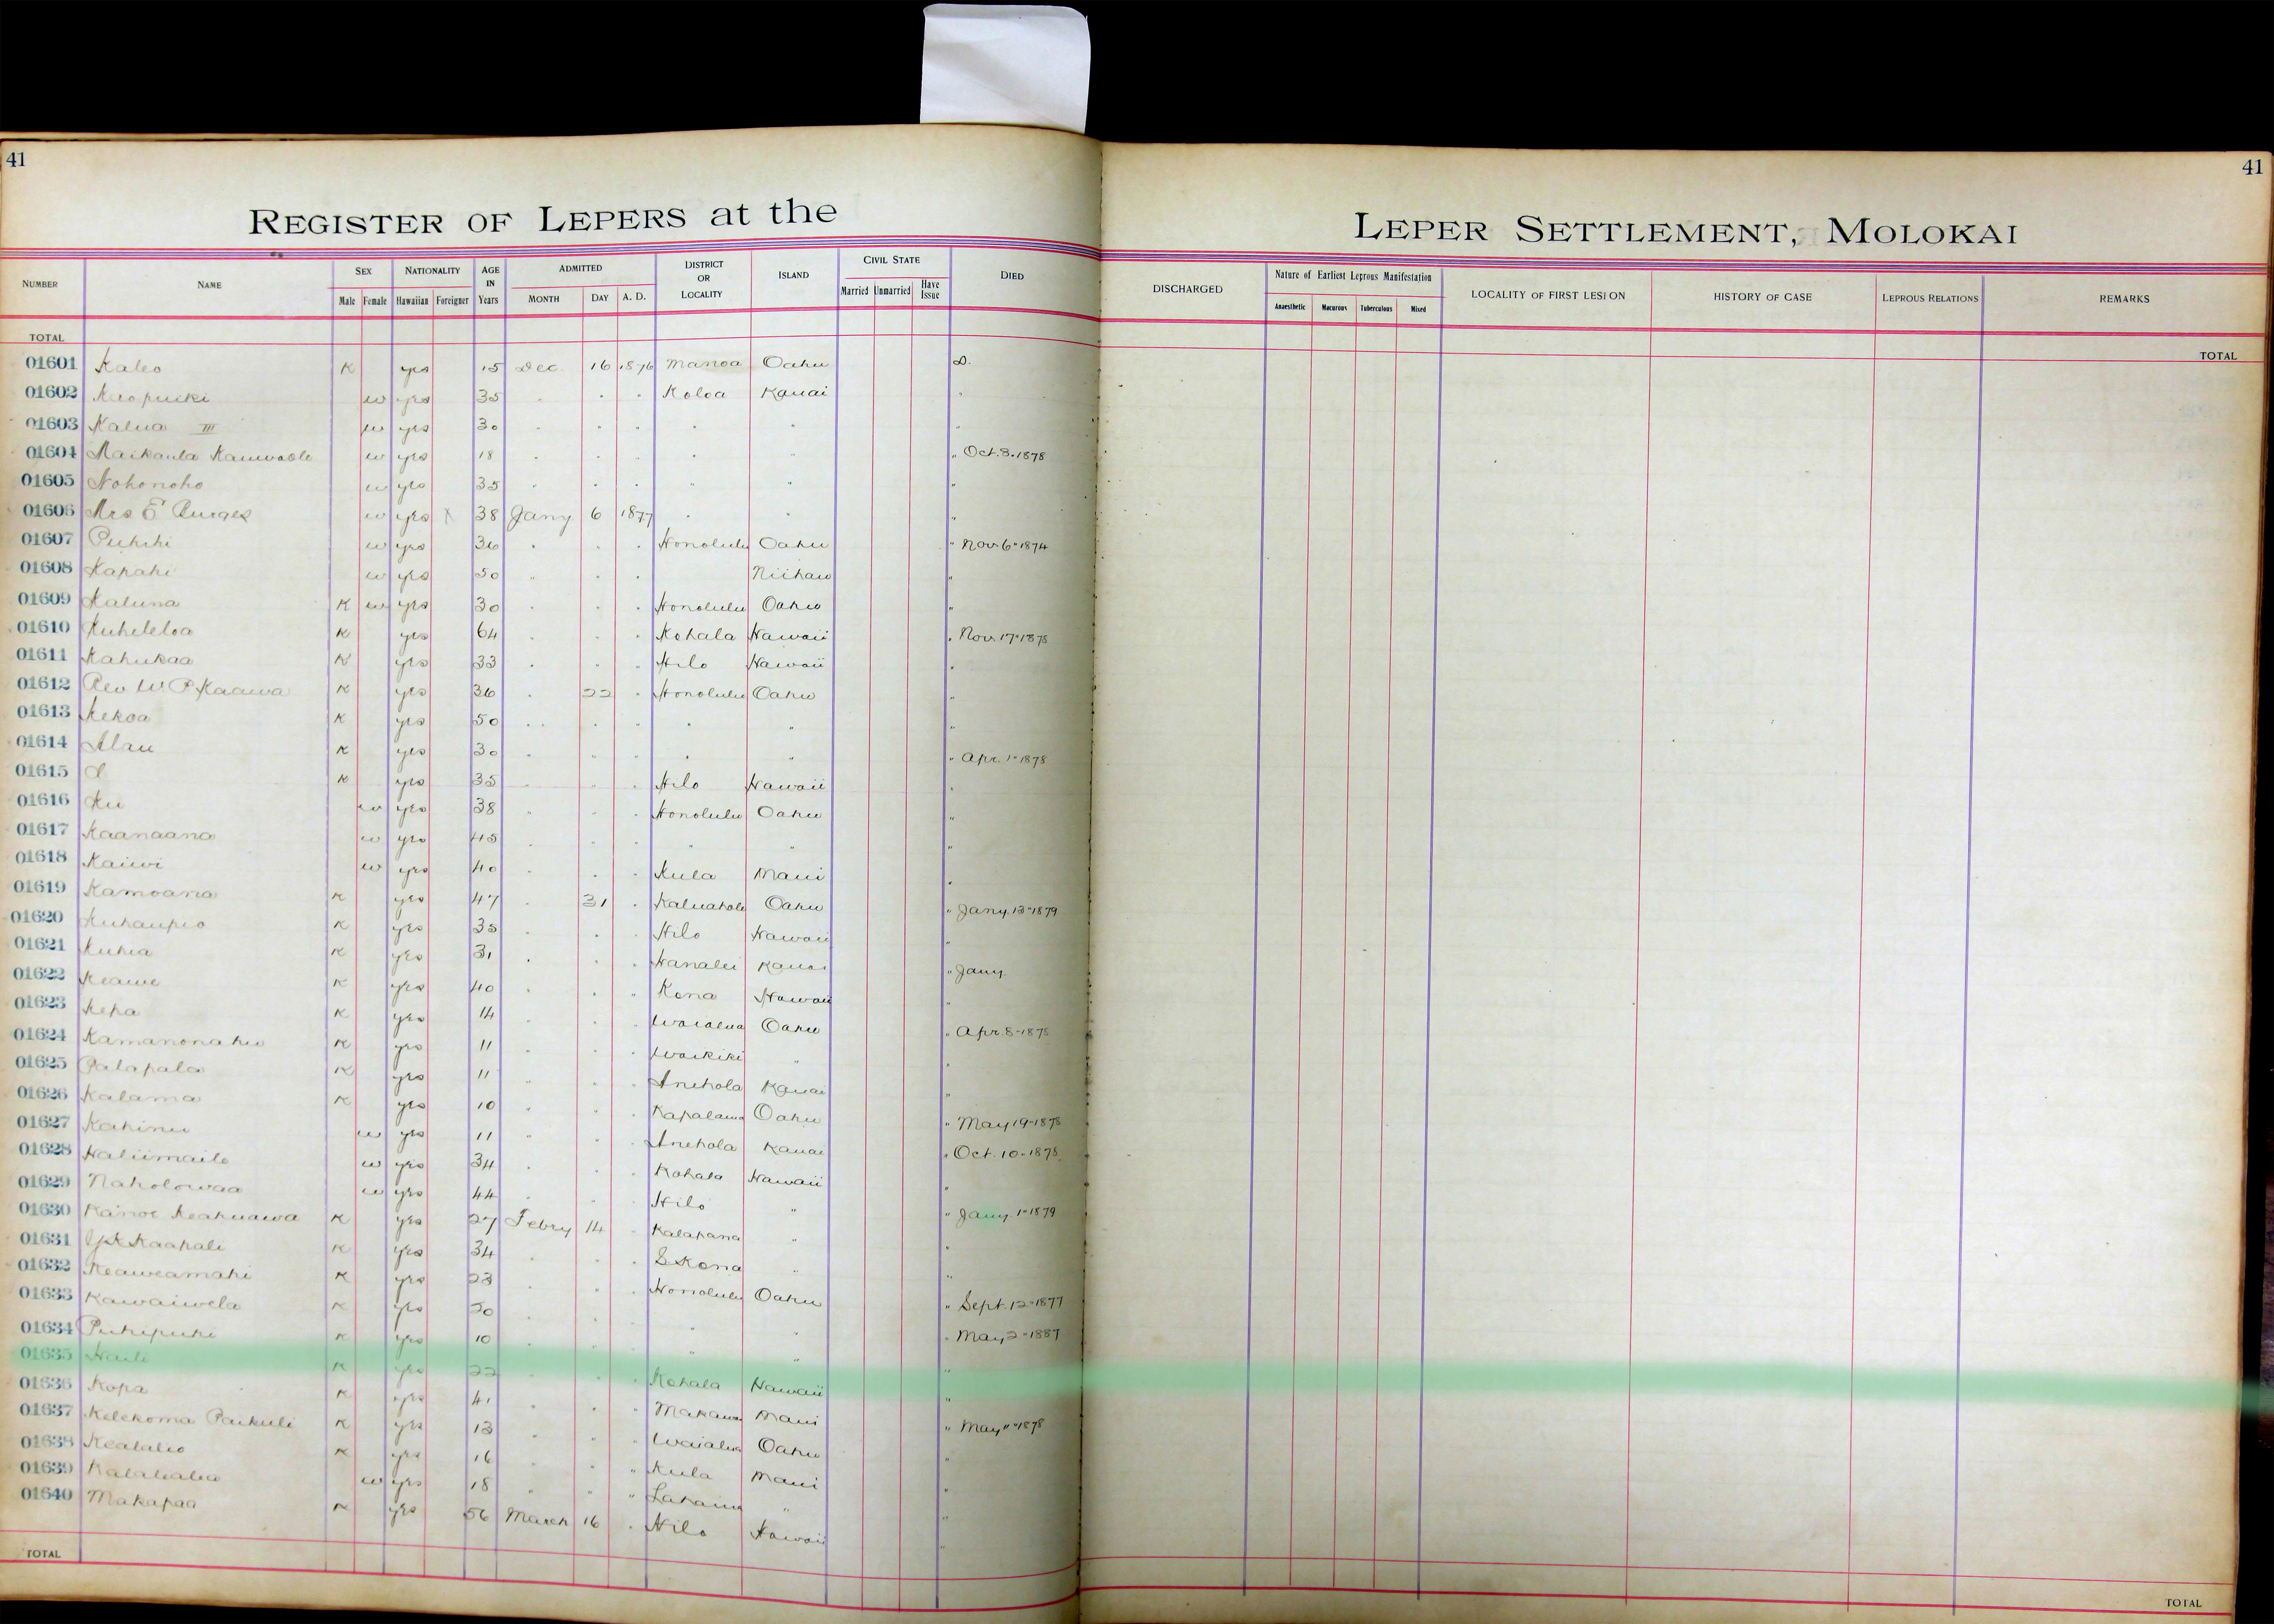 41
41
REGISTER OF LEPERS at the LEPER SETTLEMENT, MOLOKAI
NUMBER NAME SEX NATIONALITY AGE IN Years ADMITTED DISTRICT OR LOCALITY ISLAND CIVIL STATE DIED DISCHARGED Nature of Earliest Leprous Manifestation LOCALITY OF FIRST LESION HISTORY OF CASE LEPROUS RELATIONS REMARKS
Male Female Hawaiian Foreigner MONTH DAY A. D. Married Unmarried Have Issue Anaesthetic Macurous Tuberculous Mixed
TOTAL TOTAL
01601 Kaleo K yes 15 Dec. 16 1876 Manoa Oahu D.
01602 w yes 35 " " " Koloa Kauai "
01603 Kalua III w yes 30 " " " " " "
01604 Maikaula w yes 18 " " " " " " Oct. 3. 1878
01605 Nohonoho w yes 35 " " " " " "
01606 Mrs E Burges w yes X 38 Jany 6 1877 " " "
01607 Puhihi w yes 36 " " " Honolulu Oahu " Nov 6" 1874
01608 Kapahi w yes 50 " " " Niihau "
01609 Kaluna K w yes 30 " " " Honolulu Oahu "
01610 Kuheleloa K yes 64 " " " Kohala Hawaii " Nov. 17" 1878
01611 Kahukaa K yes 33 " " " Hilo Hawaii "
01612 Rev W. P. Kaawa K yes 36 " 22 " Honolulu Oahu "
01613 Kekoa K yes 50 " " " " " "
01614 Alau K yes 30 " " " " " " Apr. 1" 1878
01615 K yes 35 " " " Hilo Hawaii "
01616 Ku w yes 38 " " " Honolulu Oahu "
01617 Kaanaana w yes 45 " " " " " "
01618 Kaiwi w yes 40 " " " Kula Maui "
01619 Kamoana K yes 47 " 31 " Oahu " Jany. 13" 1879
01620 Kuhaupio K yes 35 " " " Hilo Hawaii "
01621 Kuhia K yes 31 " " " Hanalei Kauai " Jany.
01622 Keawe K yes 40 " " " Kona Hawaii "
01623 Kepa K yes 14 " " " Waialua Oahu " Apr. 8" 1878
01624 K yes 11 " " " Waikiki " "
01625 Palapala K yes 11 " " " Anehola Kauai "
01626 Kalama K yes 10 " " " Kapalama Oahu " May 19" 1878
01627 Kahinu w yes 11 " " " Anehola Kauai " Oct. 10" 1878
01628 Haliimaile w yes 34 " " " Kohala Hawaii "
01629 Naholowaa w yes 44 " " " Hilo " " Jany. 1" 1879
01630 Kanoe Keakuawa K yes 27 Febry 14 " Kalapana " "
01631 Kaapale K yes 34 " " " S Kona " "
01632 Keaweamahi K yes 23 " " " Honolulu Oahu " Sept. 12" 1877
01633 Kawaiwela K yes 20 " " " " " " May 2" 1887
01634 Puhipuhi K yes 10 " " " " " "
01635 Haili K yes 22 " " " Kohala Hawaii "
01636 Kopa K yes 41 " " " Makawao Maui " May " 1878
01637 Kelekoma Paikuli K yes 13 " " " Waialua Oahu "
01638 K yes 16 " " " Kula Maui "
01639 w yes 18 " " " Lahaina " "
01640 Makapaa K yes 56 March 16 " Hilo Hawaii "
TOTAL TOTAL